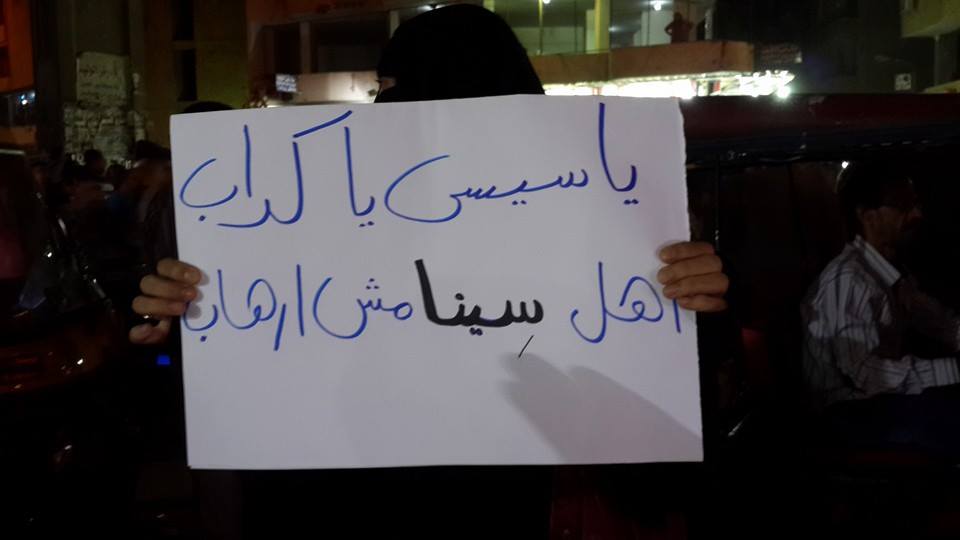 ياسيسى ياكداب
اهل سينا مش ارهاب